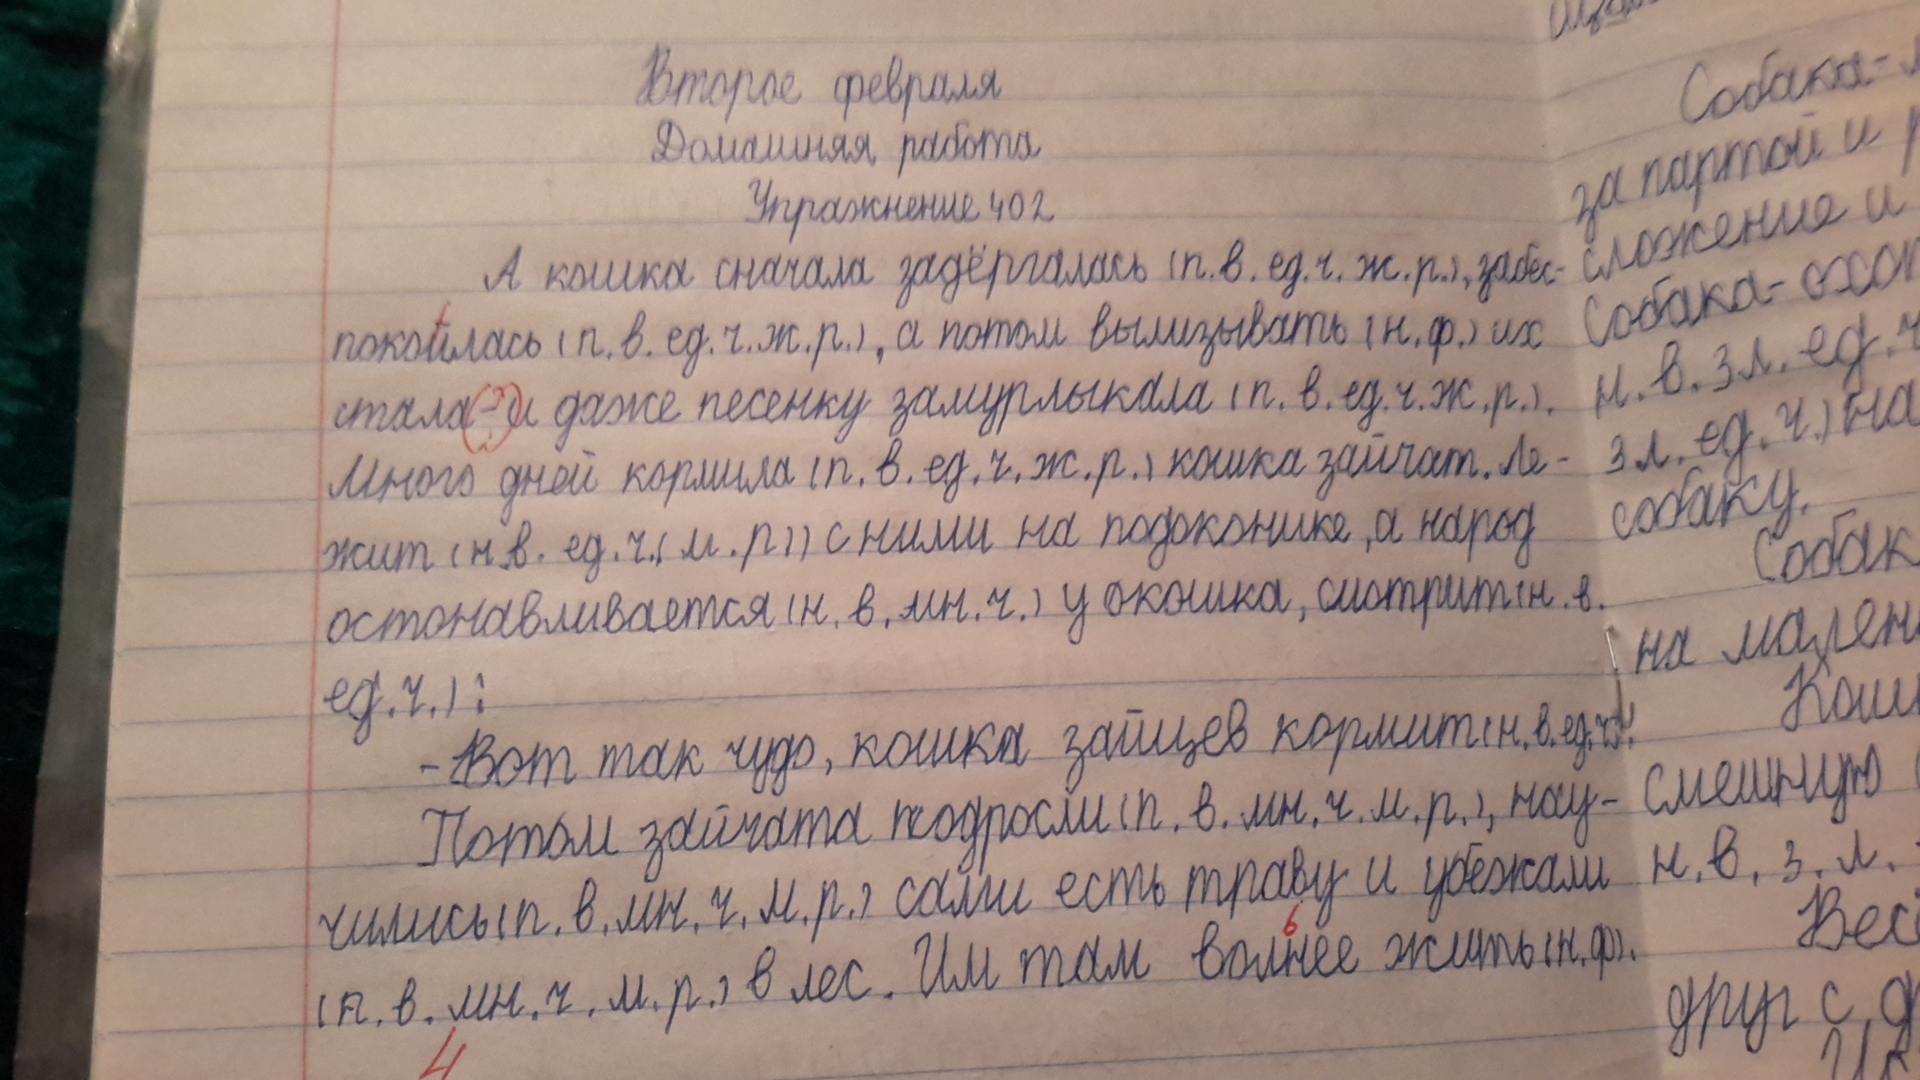 Второе февраля
Домашняя работа
Упражнение 402
А кошка сначала задёргалась (п.в. ед.ч. ж.р.), забес-
покоилась (п.в. ед.ч. ж.р.), а потом вылизывать (н.ф.) их
стала - и даже песенку замурлыкала (п.в. ед.ч. ж.р.).
Много дней кормила (п.в. ед.ч. ж.р.) кошка зайчат. Ле-
жит (н.в. ед.ч. (м.р.)) с ними на подоконике, а народ
остонавливается (н.в. мн.ч.) у окошка, смотрит (н.в.
ед.ч.):
- Вот так чудо, кошка зайцев кормит (н.в. ед.ч.)!
Потом зайчата подросли (п.в. мн.ч. м.р.), нау-
чились (п.в. мн.ч. м.р.) сами есть траву и убежали
(п.в. мн.ч. м.р.) в лес. Им там вольнее жить (н.ф.).
4
Собака-
за партой и
сложение и
Собака-охот
н.в. 3л. ед.ч
3л. ед.ч.) на
собаку.
Собак
на мален
Кош
смешную
н.в. 3.л.
Вес
друг с д